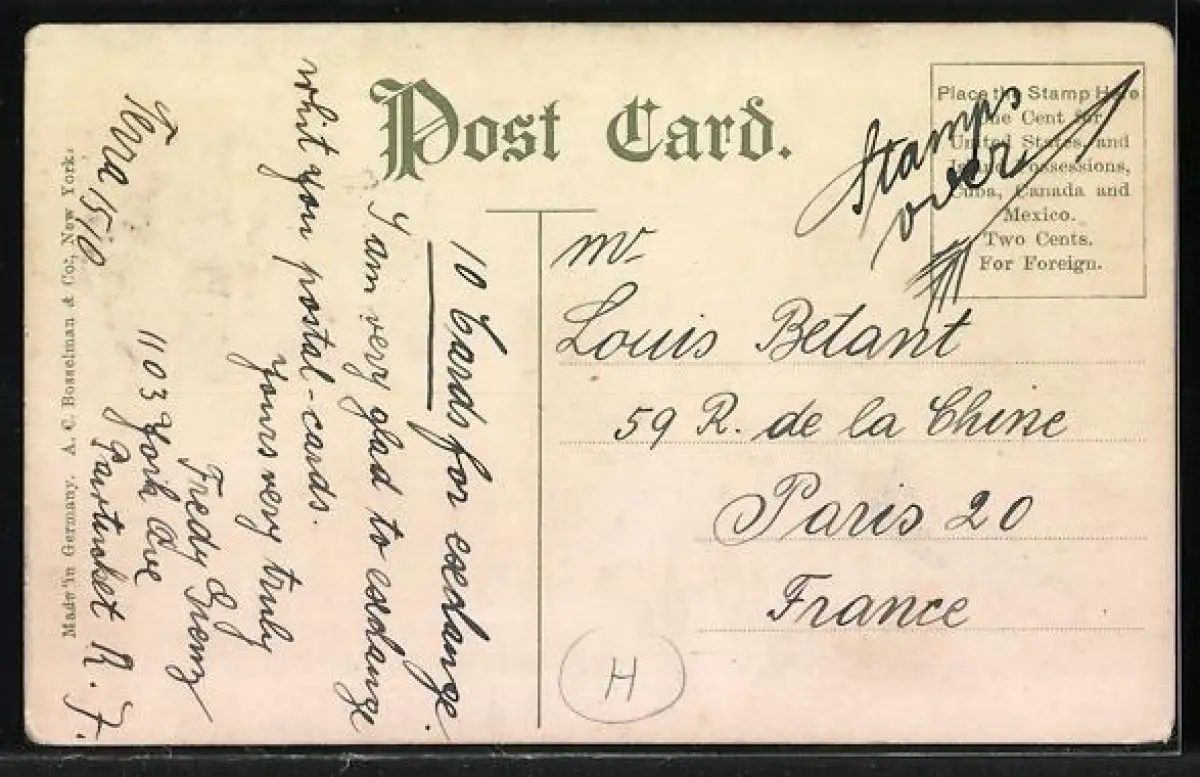 Post Card.
Place the Stamp Here
One Cent for
United States, and
Island Possessions,
Cuba, Canada and
Mexico.
Two Cents.
For Foreign.
Stamps
over
10 Cards for exchange.
I am very glad to exchange
whit you postal-cards.
Yours very truly
Fredy
1103 York Ave
Pawtucket R. I.
1510
Mr
Louis Betant
59 R. de la Chine
Paris 20
France
H
Made in Germany. A. C. Bosselman & Co., New York.